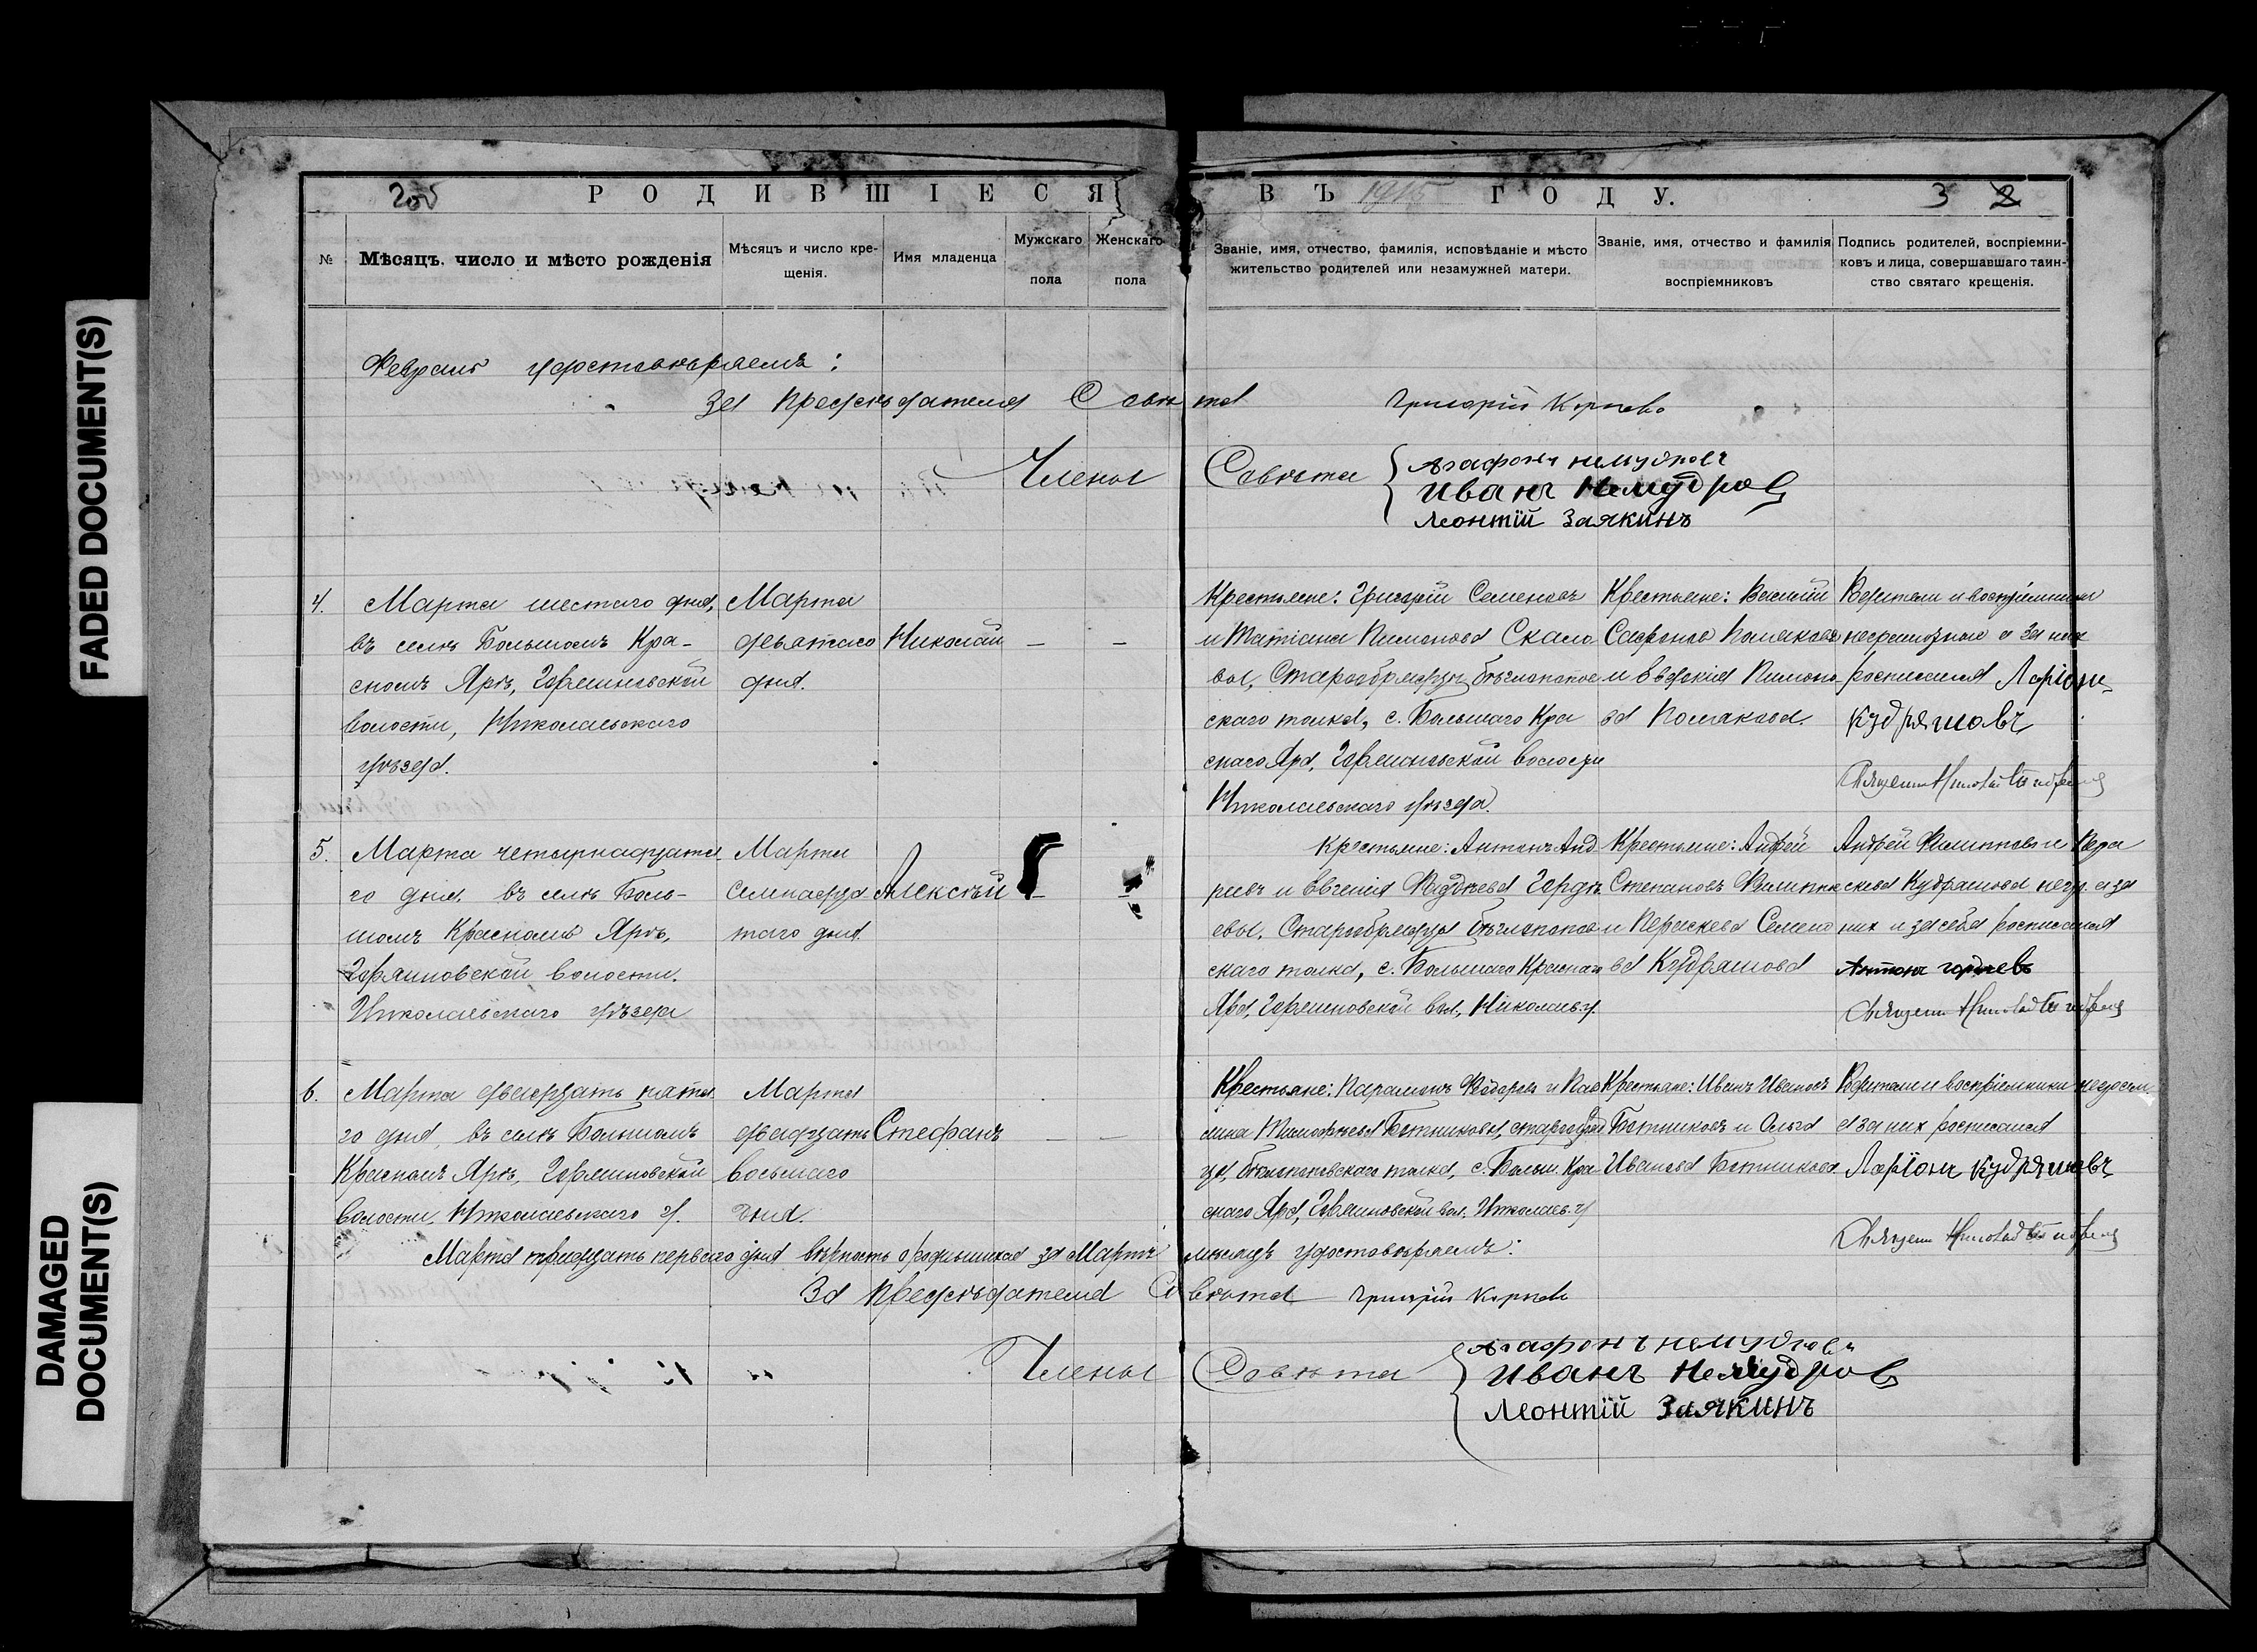 FADED DOCUMENT(S)
DAMAGED DOCUMENT(S)
РОДИВШІЕСЯ
ВЪ 1915 ГОДУ.
3
2
№
Мѣсяцъ, число и мѣсто рожденія
Мѣсяцъ и число кре-
щенія.
Имя младенца
Мужскаго
пола
Женскаго
пола
Званіе, имя, отчество, фамилія, исповѣданіе и мѣсто
жительство родителей или незамужней матери.
Званіе, имя, отчество и фамилія
воспріемниковъ
Подпись родителей, воспріемни-
ковъ и лица, совершавшаго таин-
ство святаго крещенія.
удостовѣряемъ:
За Предсѣдателя Совѣта Григорій
Члены Совѣта
Агафонъ Немудровъ
Иванъ Немудров
Леонтій Заякинъ
4.
Марта шестаго дня,
въ селѣ Большомъ Кра-
сномъ Ярѣ, Горяиновской
волости, Николаевскаго
уѣзда.
Марта
девятаго
дня.
Николай
— —
Крестьяне: Григорій Семеновъ
и Татіана Пимонова Скало
вы, Старообрядцы бѣглопопов
скаго толка, с. Большаго Кра
снаго Яра, Горяиновской волости
Николаевскаго уѣзда.
Крестьяне: Василій
Сафонов Полякова
и Евдокія Пимоно
ва Полякова.
Родители и воспріемники
неграмотные а за них
росписался Ларіонъ
Кудряшовъ
Священник Николай
5.
Марта четырнадцата-
го дня, въ селѣ Боль-
шомъ Красномъ Ярѣ,
Горяиновской волости.
Николаевскаго уѣзда
Марта
семнадца
таго дня.
Алексѣй
— —
Крестьяне: Антонъ Анд
реевъ и Евгенія Фадѣева Гордѣ
евы, Старообрядцы бѣглопопов
скаго толка, с. Большаго Краснаго
Яра, Горяиновской вол., Николаев. у.
Крестьяне: Андрей
Степановъ Филиппов
и Параскева Семено
ва Кудряшова
Андрей Филиппов и Пара
скева Кудряшова негр. а за
них и за себя росписался
Антонъ гордеевъ
Священ Николай
6.
Марта двадцать пята
го дня, въ селѣ Большомъ
Красномъ Ярѣ, Горяиновской
волости, Николаевскаго у.
Марта
двадцать
восьмаго
дня.
Стефанъ
— —
Крестьяне: Парамонъ Ѳёдоровъ и Пав
лина Тимофѣева Ботниковы, старообряд
цы, бѣглопоповскаго толка, с. Больш. Кра
снаго Яра, Горяиновской вол. Николаев. у
Крестьяне: Иванъ Ивановъ
Ботниковъ и Ольга
Иванова Ботникова
Родители и воспріемники неграм.
а за них росписался
Ларіонъ Кудряшовъ
Священ Николай
Марта тридцать перваго дня вѣрность о родившихся за Мартъ мѣсяцъ удостовѣряемъ:
За Предсѣдателя Совѣта Григорій
Члены Совѣта
Агафонъ Немудровъ
Иванъ Немудров
Леонтій Заякинъ